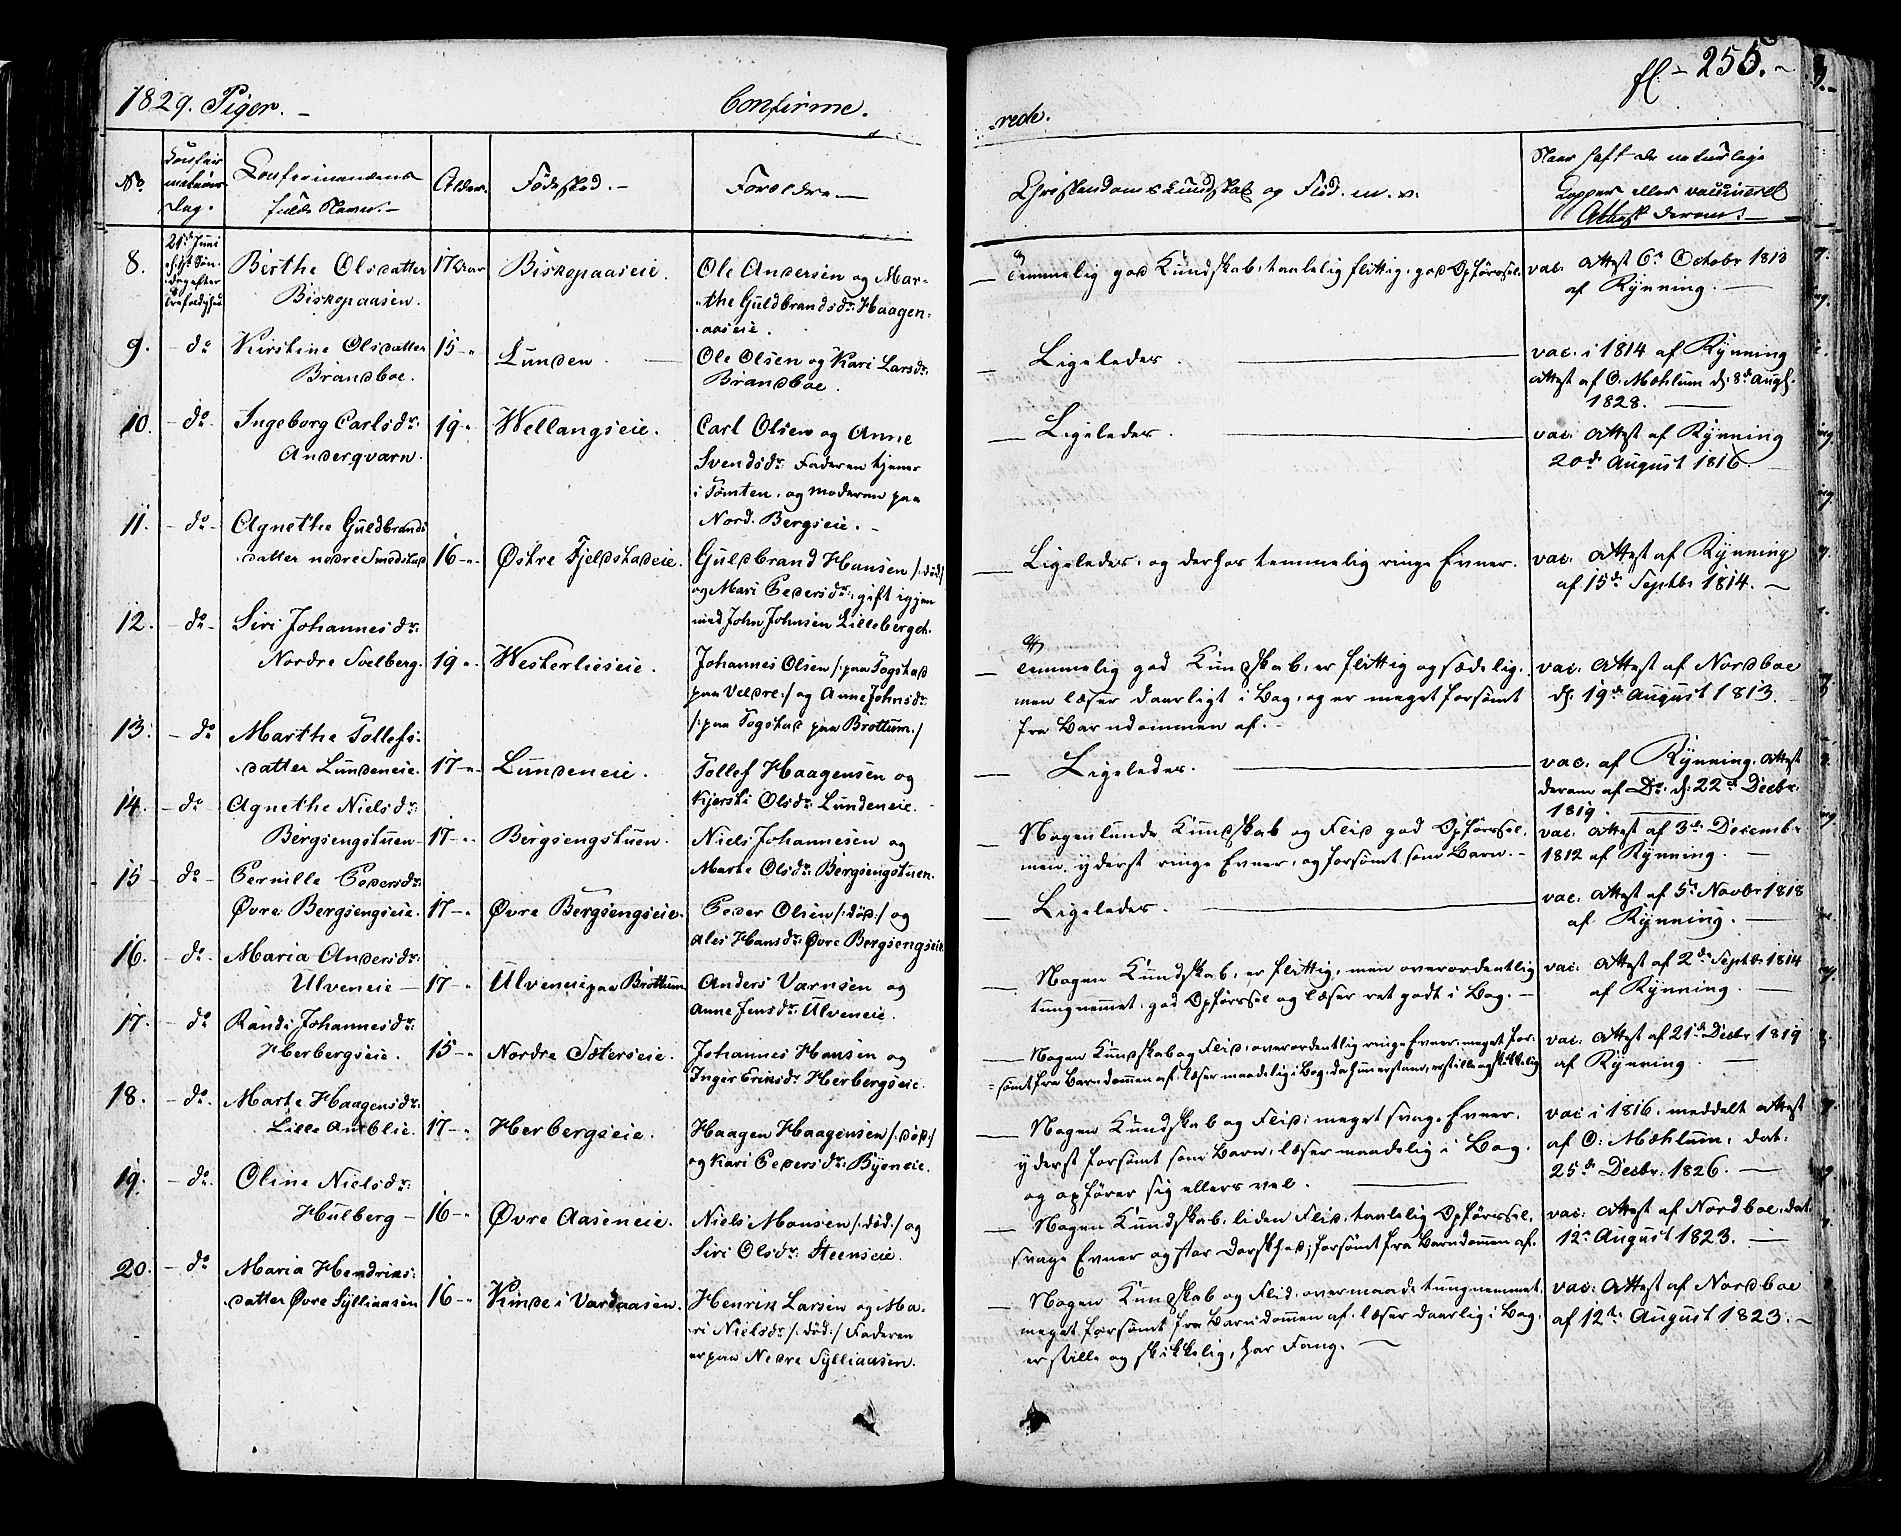 1829. Piger. -
Confirme.
No
Confir-
mations
Dag.
Confirmandens
fulde Navn. -
Alder.
Fødested. -
Forældre. -
8.
21de Juni
Søn-
dag efter
Trefoldighed
Berthe Olsdatter
Biskopaasen.
17 Aar
Biskopaaseie.
Ole Andersen og Mar-
the Guldbrandsdr: Haagen-
aaseie.
9.
- do
Kirstine Olsdatter
Brandboe.
15 -"
Lunden.
Ole Olsen og Kari Larsdr:
Brandboe.
10.
- do.
Ingeborg Carlsdr:
Anderqvarn.
19 -"
Wellangseie.
Carl Olsen og Anne
Svendsdr: Faderen tjener
i Tømten, og moderen paa
Nord. Bergseie. -
11.
- do -
Agnethe Guldbrands
datter nordre Smedstad
16 -"
Østre Fjeldstadeie.
Guldbrand Hansen /:død:/
og Mari Pedersdr:, gift igjen
med John Johnsen Lilleberget.
12.
- do -
Siri Johannesdr:
Nordre Svelberg.
19 "
Westerlieseie.
Johannes Olsen /:paa Togstad
paa Veldre:/ og Anne Johnsdr:
/:paa Togstad paa Brottum:/
13.
- do
Marthe Tollefs-
datter Lundeneie.
17 -"
Lundeneie.
Tollef Haagensen og
Kjersti Olsdr: Lundeneie.
14.
- do -
Agnethe Nielsdr:
Bergsengstuen
17 -"
Bergsengstuen.
Niels Johannesen og
Marte Olsdr: Bergsengstuen.
15 -
do -
Pernille Pedersdr:
Øvre Bergsengseie.
17 -"
Øvre Bergsengseie.
Peder Olsen /:død:/ og
Ales Hansdr: Øvre Bergsengseie
16.
- do -
Maria Andersdr:
Ulveneie -
17 - "
Ulveneie paa Brottum
Anders Varnsen og
Anne Jensdr: Ulveneie.
17.
- do
Randi Johannesdr:
Herbergseie.
15 -"
Nordre Sæterseie.
Johannes Hansen og
Inger Eriksdr: Herbergseie.
18.
- do.
Marte Haagensdr:
Lille Amblie.
17 -"
Herbergseie.
Haagen Haagensen /:død:/
og Kari Pedersdr: Byeneie.
19.
- do.
Oline Nielsdr:
Hulberg -
16 -"
Øvre Aaseneie.
Niels Monsen /:død:/ og
Siri Olsdr: Steenseie.
20.
- do
Maria Hendriks-
datter Øvre Sylliaasen
16 -"
Kinde i Vardaasen.
Henrik Larsen og Ma-
ri Nielsdr: /:død:/ Faderen
er paa Nedre Sylliaasen.
fl - 255. -
-rede.
Christendoms Kundskab og Flid. m. v.
Naar haft de naturlige
Kopper eller vaccineret
Attest derom. -
Temmelig god Kundskab, taalelig flittig, god Opførsel.
vac. Attest 6te Octobr 1813
af Rynning. -
Ligeledes.
vac. i 1814 af Rynning
Attest af O. Mæhlum d. 8de Augst.
1828. -
Ligeledes.
vac. Attest af Rynning
20de August 1816.
Ligeledes, og derhos temmelig ringe Evner.
vac. Attest af Rynning
af 15de Septbr 1814. -
Temmelig god Kundskab, er flittig og sædelig,
men læser daarligt i Bog, og er meget forsømt
fra Barndommen af. -
vac. Attest af Nordboe
d. 19de August 1813.
Ligeledes.
vac. af Rynning. Attest
derom af Do. d. 22de Decbr.
1819.
Nogenlunde Kundskab og Flid god Opførsel,
men yderst ringe Evner, og forsømt som Barn. -
vac. Attest af 3de Decembr
1812 af Rynning. -
Ligeledes.
vac. Attest af 5te Novbr 1818
af Rynning. -
Nogen Kundskab, er flittig, men overordentlig
tungnemmet, god Opførsel og læser ret godt i Bog. -
vac. Attest af 2den Septbr 1814
af Rynning. -
Nogen Kundskab og Flid, overordentlig ringe Evner, meget for-
sømt fra Barndommen af, læser maadelig i Bog, er stille og skikkelig
vac. Attest af 21de Decbr 1819
af Rynning. -
Nogen Kundskab og Flid, meget svage Evner,
yderst forsømt som Barn, læser maadelig i Bog,
og opfører sig ellers vel.
vac i 1816. meddelt Attest
af O. Mæhlum. dat:
25de Decbr. 1826. -
Nogen Kundskab, liden Flid, taalelig Opførsel,
svage Evner og stor Dorskhed, forsømt fra Barndommen af.
vac. Attest af Nordboe, dat
12te August 1823. -
Nogen Kundskab og Flid, overmaade tungnemmet,
meget forsømt fra Barndommen af, læser daarlig i Bog,
er stille og skikkelig, har Fang. -
vac. Attest af Nordboe
af 12te August 1823. -